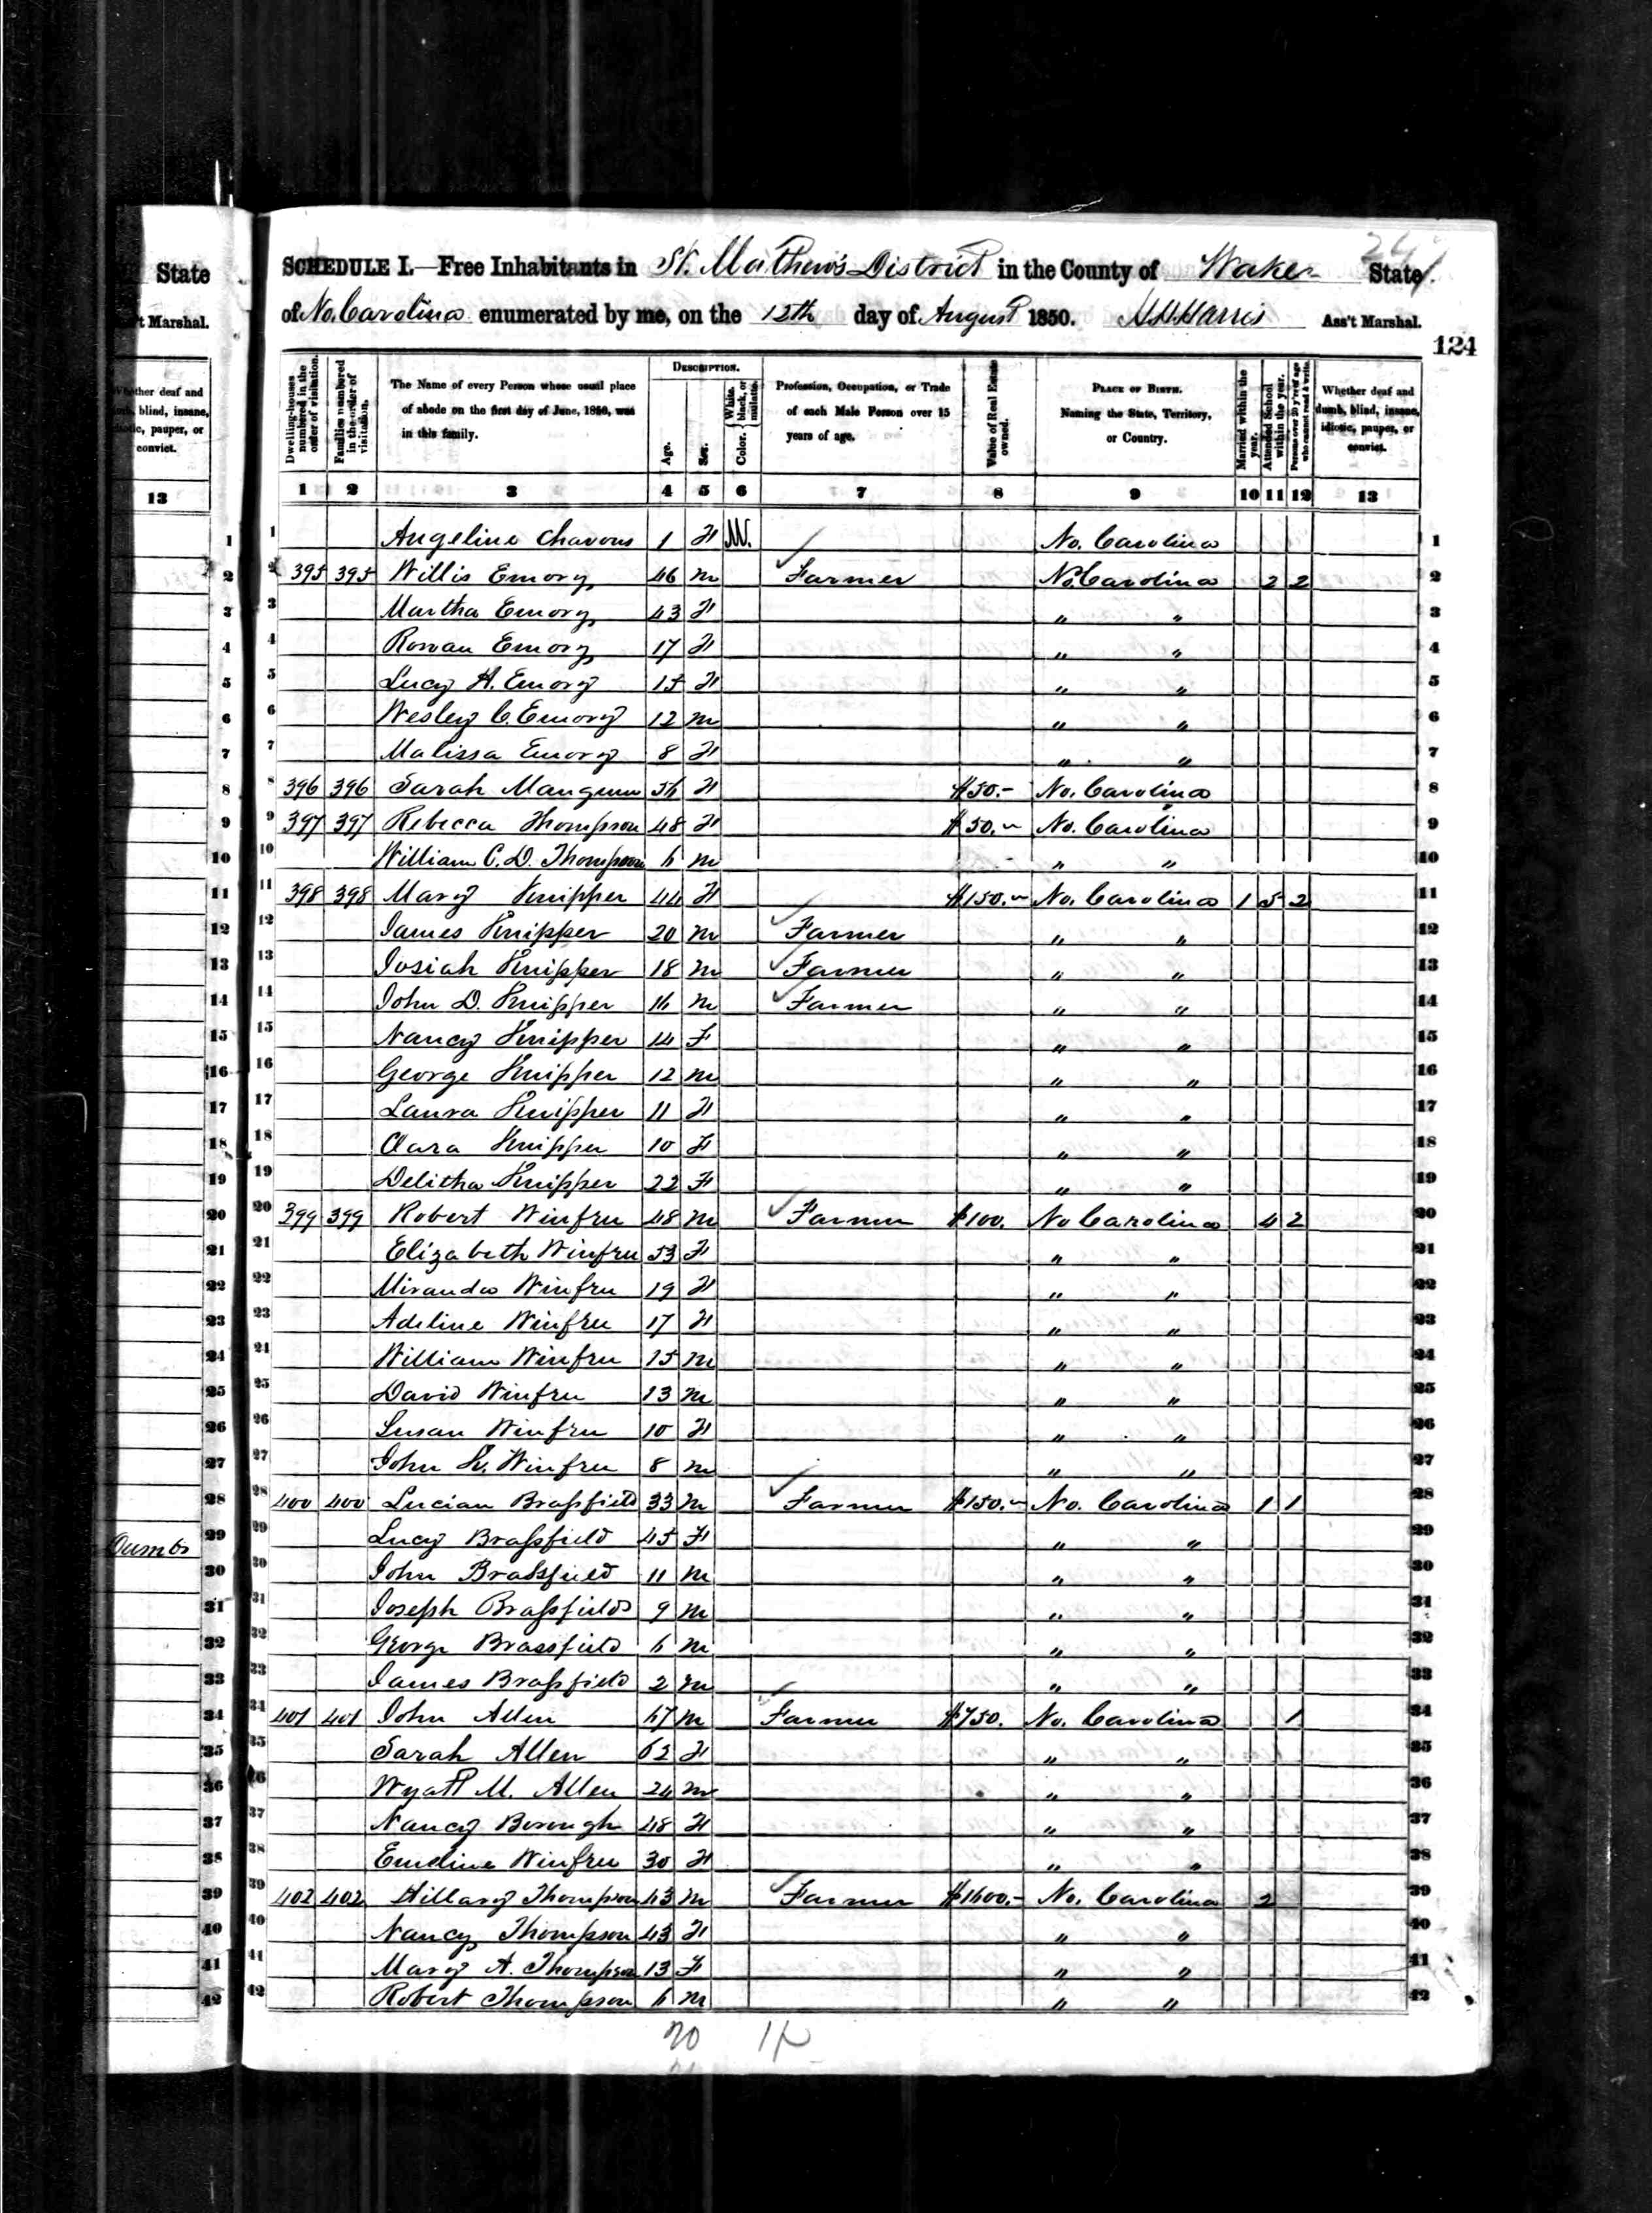 State
't Marshal.
Whether deaf and
dumb, blind, insane,
idiotic, pauper, or
convict.
13
Dumb
244
SCHEDULE I.—Free Inhabitants in St. Mathew's District in the County of Wake State
of No. Carolina enumerated by me, on the 12th day of August 1850. Harris Ass't Marshal.
124
Dwelling-houses numbered in the order of visitation.
Families numbered in the order of visitation.
The Name of every Person whose usual place of abode on the first day of June, 1850, was in this family.
DESCRIPTION.
Age.
Sex.
Color. { White, black, or mulatto.
Profession, Occupation, or Trade of each Male Person over 15 years of age.
Value of Real Estate owned.
PLACE OF BIRTH. Naming the State, Territory, or Country.
Married within the year.
Attended School within the year.
Persons over 20 y'rs of age who cannot read & write.
Whether deaf and dumb, blind, insane, idiotic, pauper, or convict.
1 2 3 4 5 6 7 8 9 10 11 12 13
1 Angeline Chavous 1 F M. No. Carolina 1
2 395 395 Willis Emory 46 m Farmer No. Carolina 2 2 2
3 Martha Emory 43 F " " 3
4 Rowan Emory 17 F " " 4
5 Lucy H. Emory 15 F " " 5
6 Wesley C. Emory 12 m " " 6
7 Malissa Emory 8 F " " 7
8 396 396 Sarah Mangum 56 F $50.- No. Carolina 8
9 397 397 Rebecca Thompson 48 F $50.- No. Carolina 9
10 William C. D. Thompson 6 m " " 10
11 398 398 Mary Knipper 44 F $150.- No. Carolina 1 5 2 11
12 James Knipper 20 m Farmer " " 12
13 Josiah Knipper 18 m Farmer " " 13
14 John D. Knipper 16 m Farmer " " 14
15 Nancy Knipper 14 F " " 15
16 George Knipper 12 m " " 16
17 Laura Knipper 11 F " " 17
18 Clara Knipper 10 F " " 18
19 Delitha Knipper 22 F " " 19
20 399 399 Robert Winfree 48 m Farmer $100. No Carolina 4 2 20
21 Elizabeth Winfree 53 F " " 21
22 Miranda Winfree 19 F " " 22
23 Adeline Winfree 17 F " " 23
24 William Winfree 15 m " " 24
25 David Winfree 13 m " " 25
26 Susan Winfree 10 F " " 26
27 John Winfree 8 m " " 27
28 400 400 Lucian Brassfield 33 m Farmer $150.- No. Carolina 1 1 28
29 Lucy Brassfield 45 F " " 29
30 John Brassfield 11 m " " 30
31 Joseph Brassfield 9 m " " 31
32 George Brassfield 6 m " " 32
33 James Brassfield 2 m " " 33
34 401 401 John Allen 67 m Farmer $750. No. Carolina 1 34
35 Sarah Allen 62 F " " 35
36 Wyatt M. Allen 24 m " " 36
37 Nancy Borough 48 F " " 37
38 Emeline Winfree 30 F " " 38
39 402 402 Hillary Thompson 43 m Farmer $1600.- No. Carolina 2 39
40 Nancy Thompson 43 F " " 40
41 Mary A. Thompson 13 F " " 41
42 Robert Thompson 6 m " " 42
20